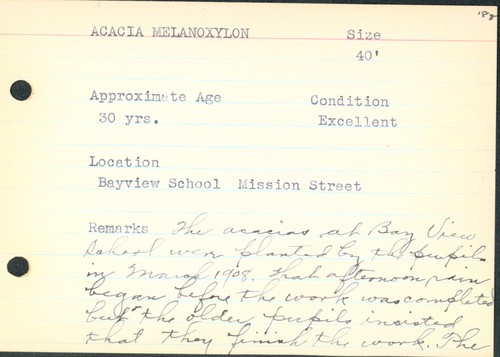 '98
ACACIA MELANOXYLON Size
40'
Approximate Age Condition
30 yrs. Excellent
Location
Bayview School Mission Street
Remarks The acacias at Bay View
School were planted by the pupils
in March 1908. That afternoon, rain
began before the work was completed
but the older pupils incisted
that they finish the work. The